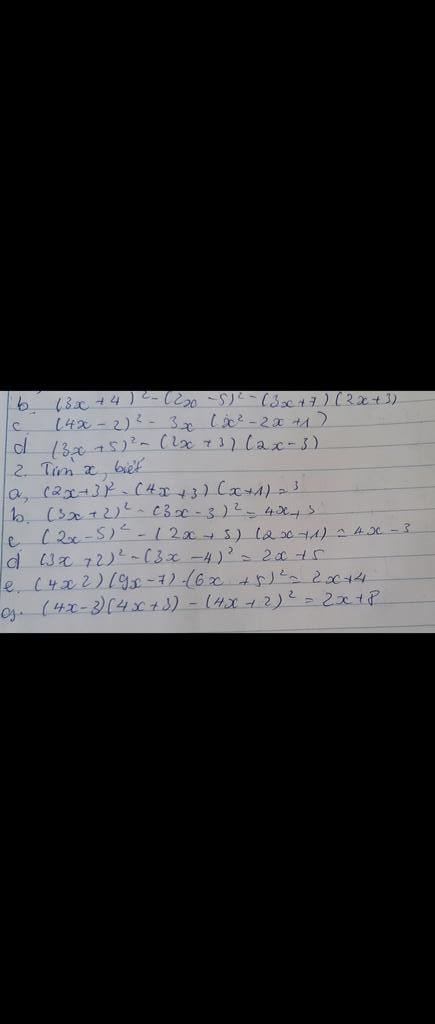 b. (3x + 4)² - (2x - 5)² - (3x + 7) (2x + 3)
c. (4x - 2)² - 3x (x² - 2x + 1)
d (3x + 5)² - (2x + 3) (2x - 3)
2. Tìm x, biết
a, (2x + 3)² - (4x + 3) (x + 1) = 3
b. (3x + 2)² - (3x - 3)² = 4x + 3
c (2x - 5)² - (2x + 5) (2x + 1) = 4x - 3
d (3x + 2)² - (3x - 4)² = 2x + 5
e. (4x 2) (9x - 7) - (6x + 5)² = 2x + 4
g. (4x - 3)(4x + 3) - (4x + 2)² = 2x + 8